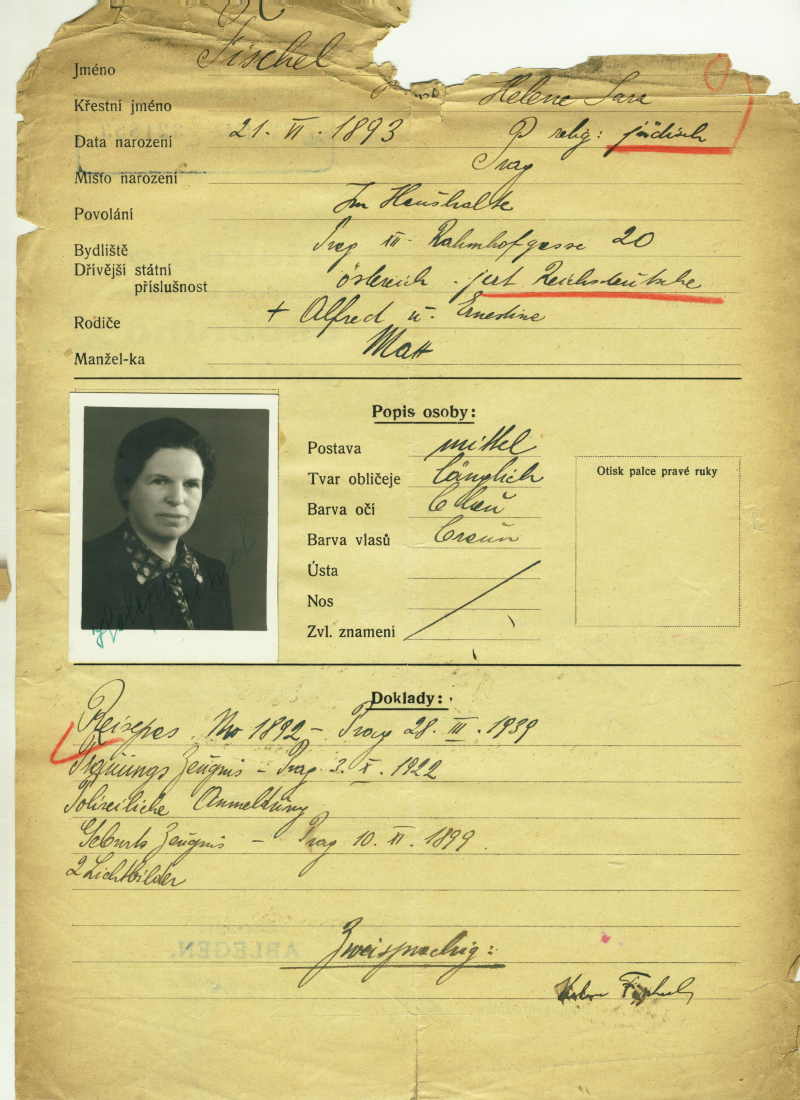 Jméno Fischel
Křestní jméno Helene Sara
Data narození 21. VI. 1893 relig: jüdisch
Místo narození Prag
Povolání Im Haushalte
Bydliště Prag XII. 20
Dřívější státní
příslušnost österreich. jezt Reichsdeutsche
Rodiče + Alfred u. Ernestine
Manžel-ka
Popis osoby:
Postava mittel
Tvar obličeje länglich
Barva očí
Barva vlasů braun
Ústa
Nos
Zvl. znamení
Otisk palce pravé ruky
Doklady:
Reisepas No 1892 – Prag 28. III. 1939
Trauungs Zeugnis – Prag 3. X. 1922
Polizeiliche Anmeldung
Geburts Zeugnis – Prag 10. XI. 1899.
2 Lichtbilder
ABLEGEN.
Zweisprachig: